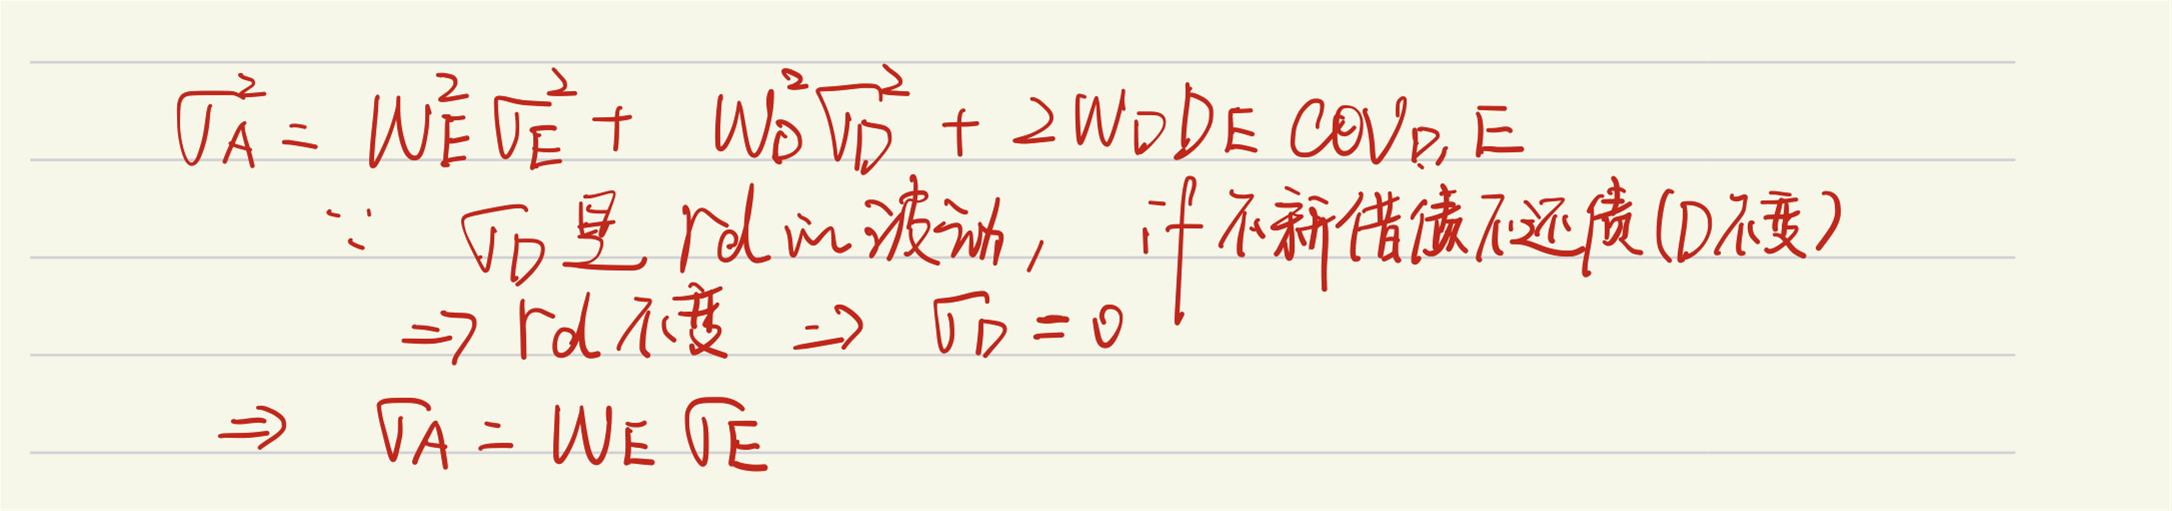 σ_A² = W_E² σ_E² + W_D² σ_D² + 2 W_D D_E COV_D, E
∵ σ_D 是 rd 的波动, if 不新借债不还债(D不变)
⇒ rd 不变 ⇒ σ_D = 0
⇒ σ_A = W_E σ_E